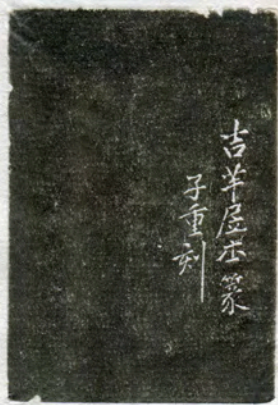 吉羊居士篆
子重刻